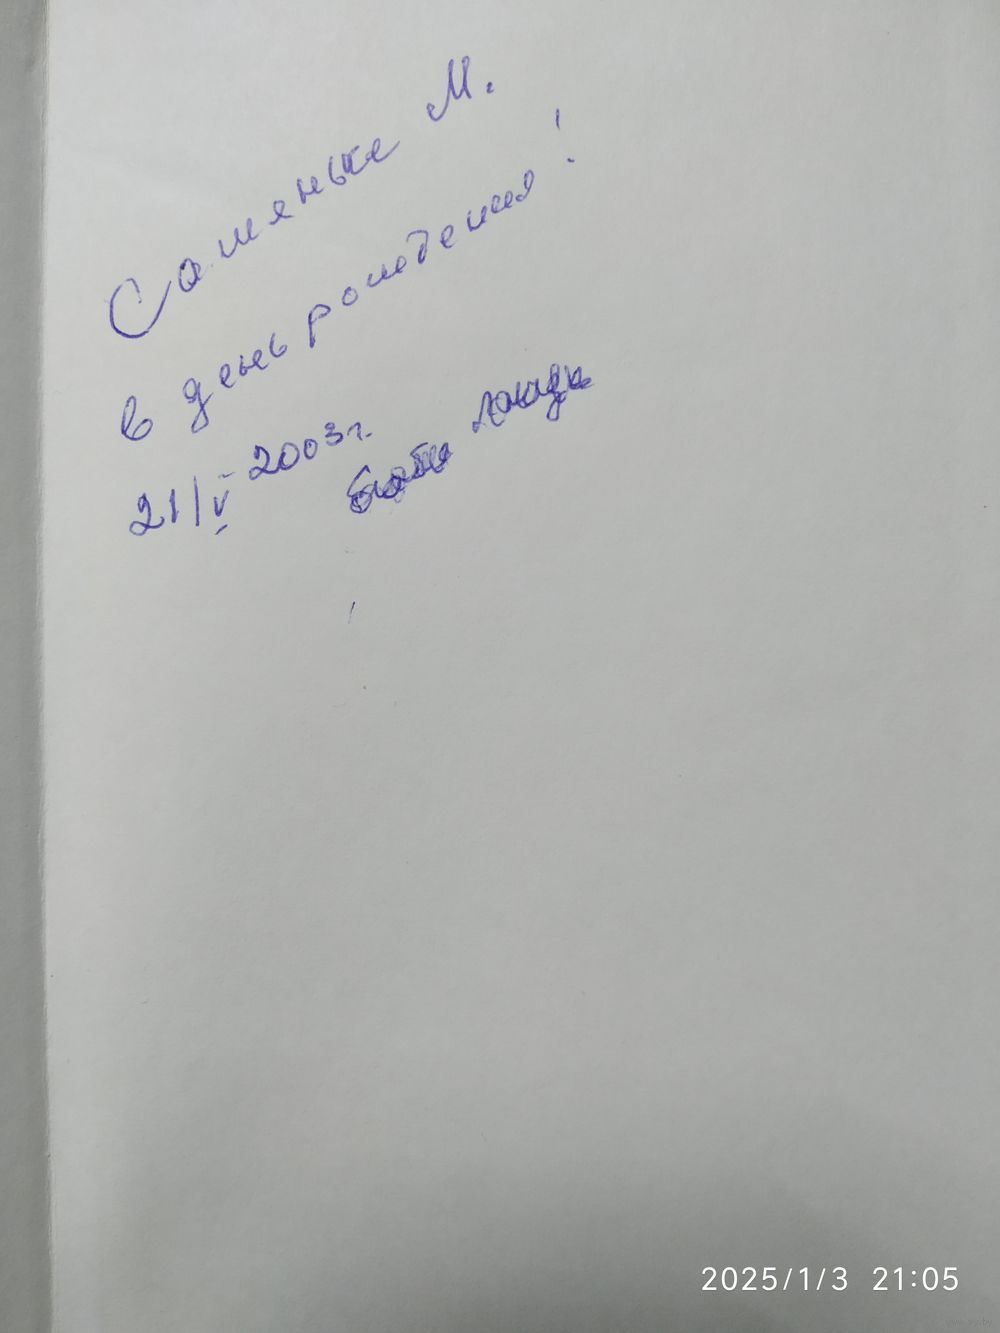 Сашеньке М.
в день рождения!
21/V 2003г.
2025/1/3 21:05